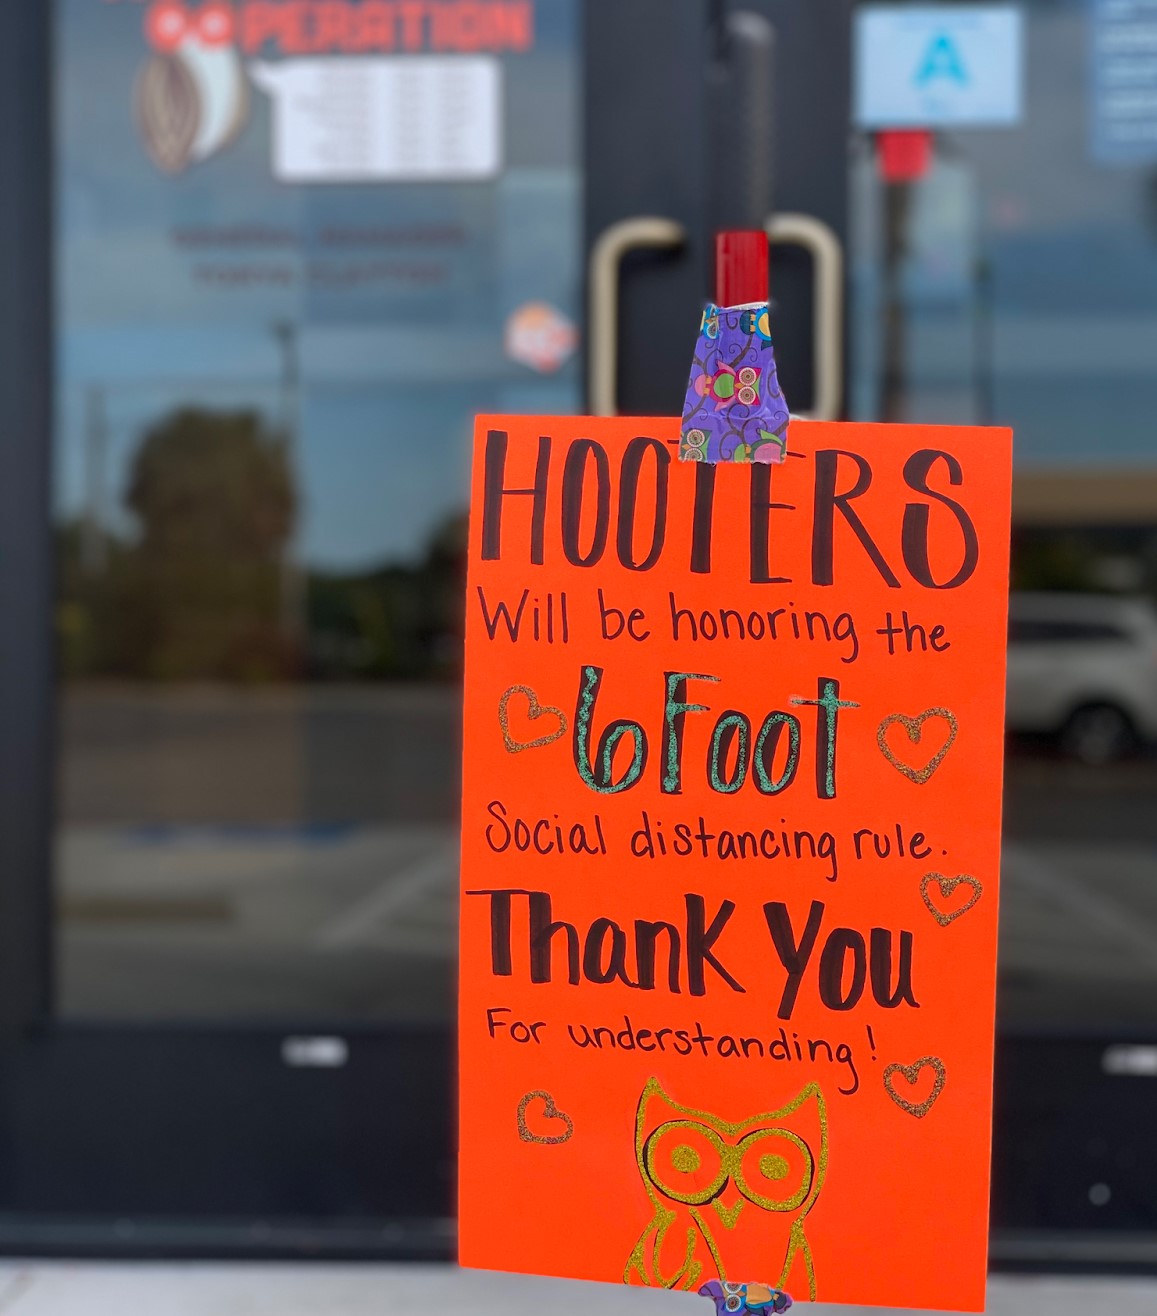 OPERATION
A
HOOTERS
Will be honoring the
6 Foot
Social distancing rule.
Thank You
For understanding!